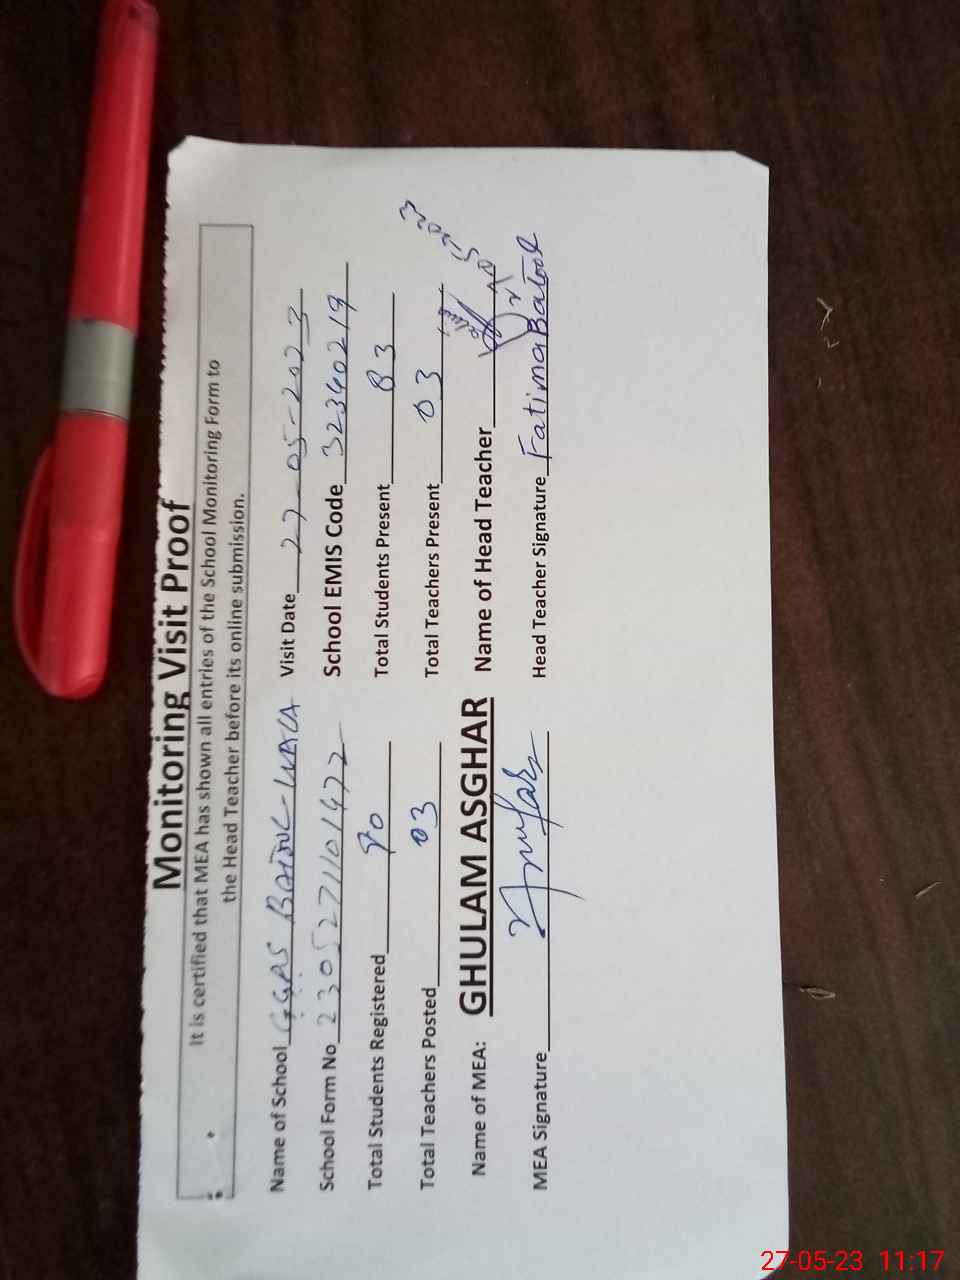 Monitoring Visit Proof
It is certified that MEA has shown all entries of the School Monitoring Form to
the Head Teacher before its online submission.
Name of School GGPS Batool Wala Visit Date 27-05-2023
School Form No 2305271101472 School EMIS Code 32340219
Total Students Registered 90 Total Students Present 83
Total Teachers Posted 03 Total Teachers Present 03
Name of MEA: GHULAM ASGHAR Name of Head Teacher
MEA Signature Head Teacher Signature Fatima Batool
27-05-23 11:17